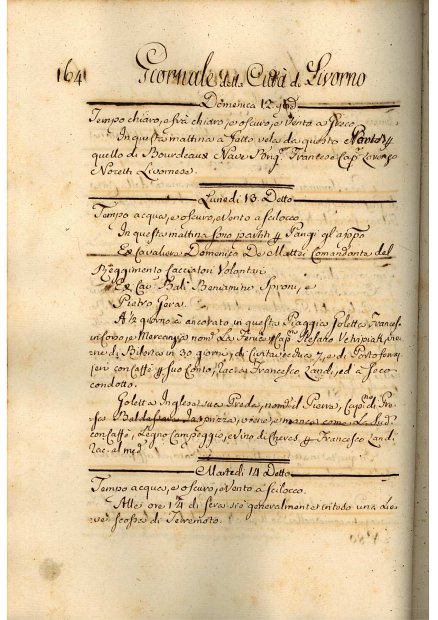 164
Giornale della Città di Livorno
Domenica 12
Tempo chiaro, e frà chiaro, e oscuro, e Vento a
In questa mattina à fatto vela da questo Porto p
quello di Bourdeaux Nave Brig. Francese Cap. Lorenzo
Noceti Livornese.
Lunedi 13. Detto
Tempo acqua, e oscuro, e Vento a scilocco
In questa mattina sono partiti p Parigi gl' app
Ex Cavaliere Domenico De Mattei Comandante del
Reggimento Cacciatori Volontari
Ex Cav. Balì Beniamino Sproni, e
Pietro Gera.
A ½ giorno à ancorato in questa Piaggia Goletta Francese
in Corso, e Mercanzia nom. La Fenice Cap. Stefano
di in 30 giorni, di Civitavecchia 7, e di Portoferraio
jeri con Caffè p suo Conto, Rac. a Francesco Landi, ed à
condotto.
Goletta Inglese sua Preda, nom. il Cap. di
Baldassare e manca come La
con Caffè, Legno Campeggio, e Vino di p Francesco Landi
Rac. al med.
Martedi 14 Detto
Tempo acqua, e oscuro, e Vento à scilocco.
Alle ore 1¼ di sera si è generalmente inteso una lie
ve scossa di Terremoto.